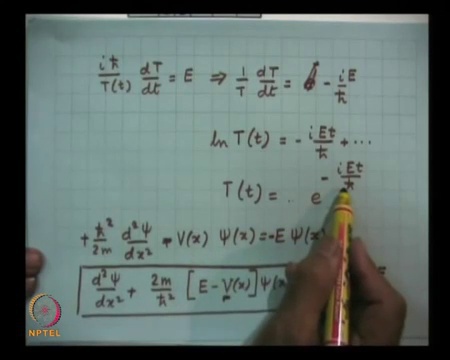 iħ/T(t) dT/dt = E ⇒ 1/T dT/dt = - iE/ħ
ln T(t) = - iEt/ħ + ...
T(t) = . e^(- iEt/ħ)
+ ħ²/2m d²Ψ/dx² - V(x) Ψ(x) = -E Ψ(x)
d²Ψ/dx² + 2m/ħ² [E - V(x)] Ψ(x)
NPTEL